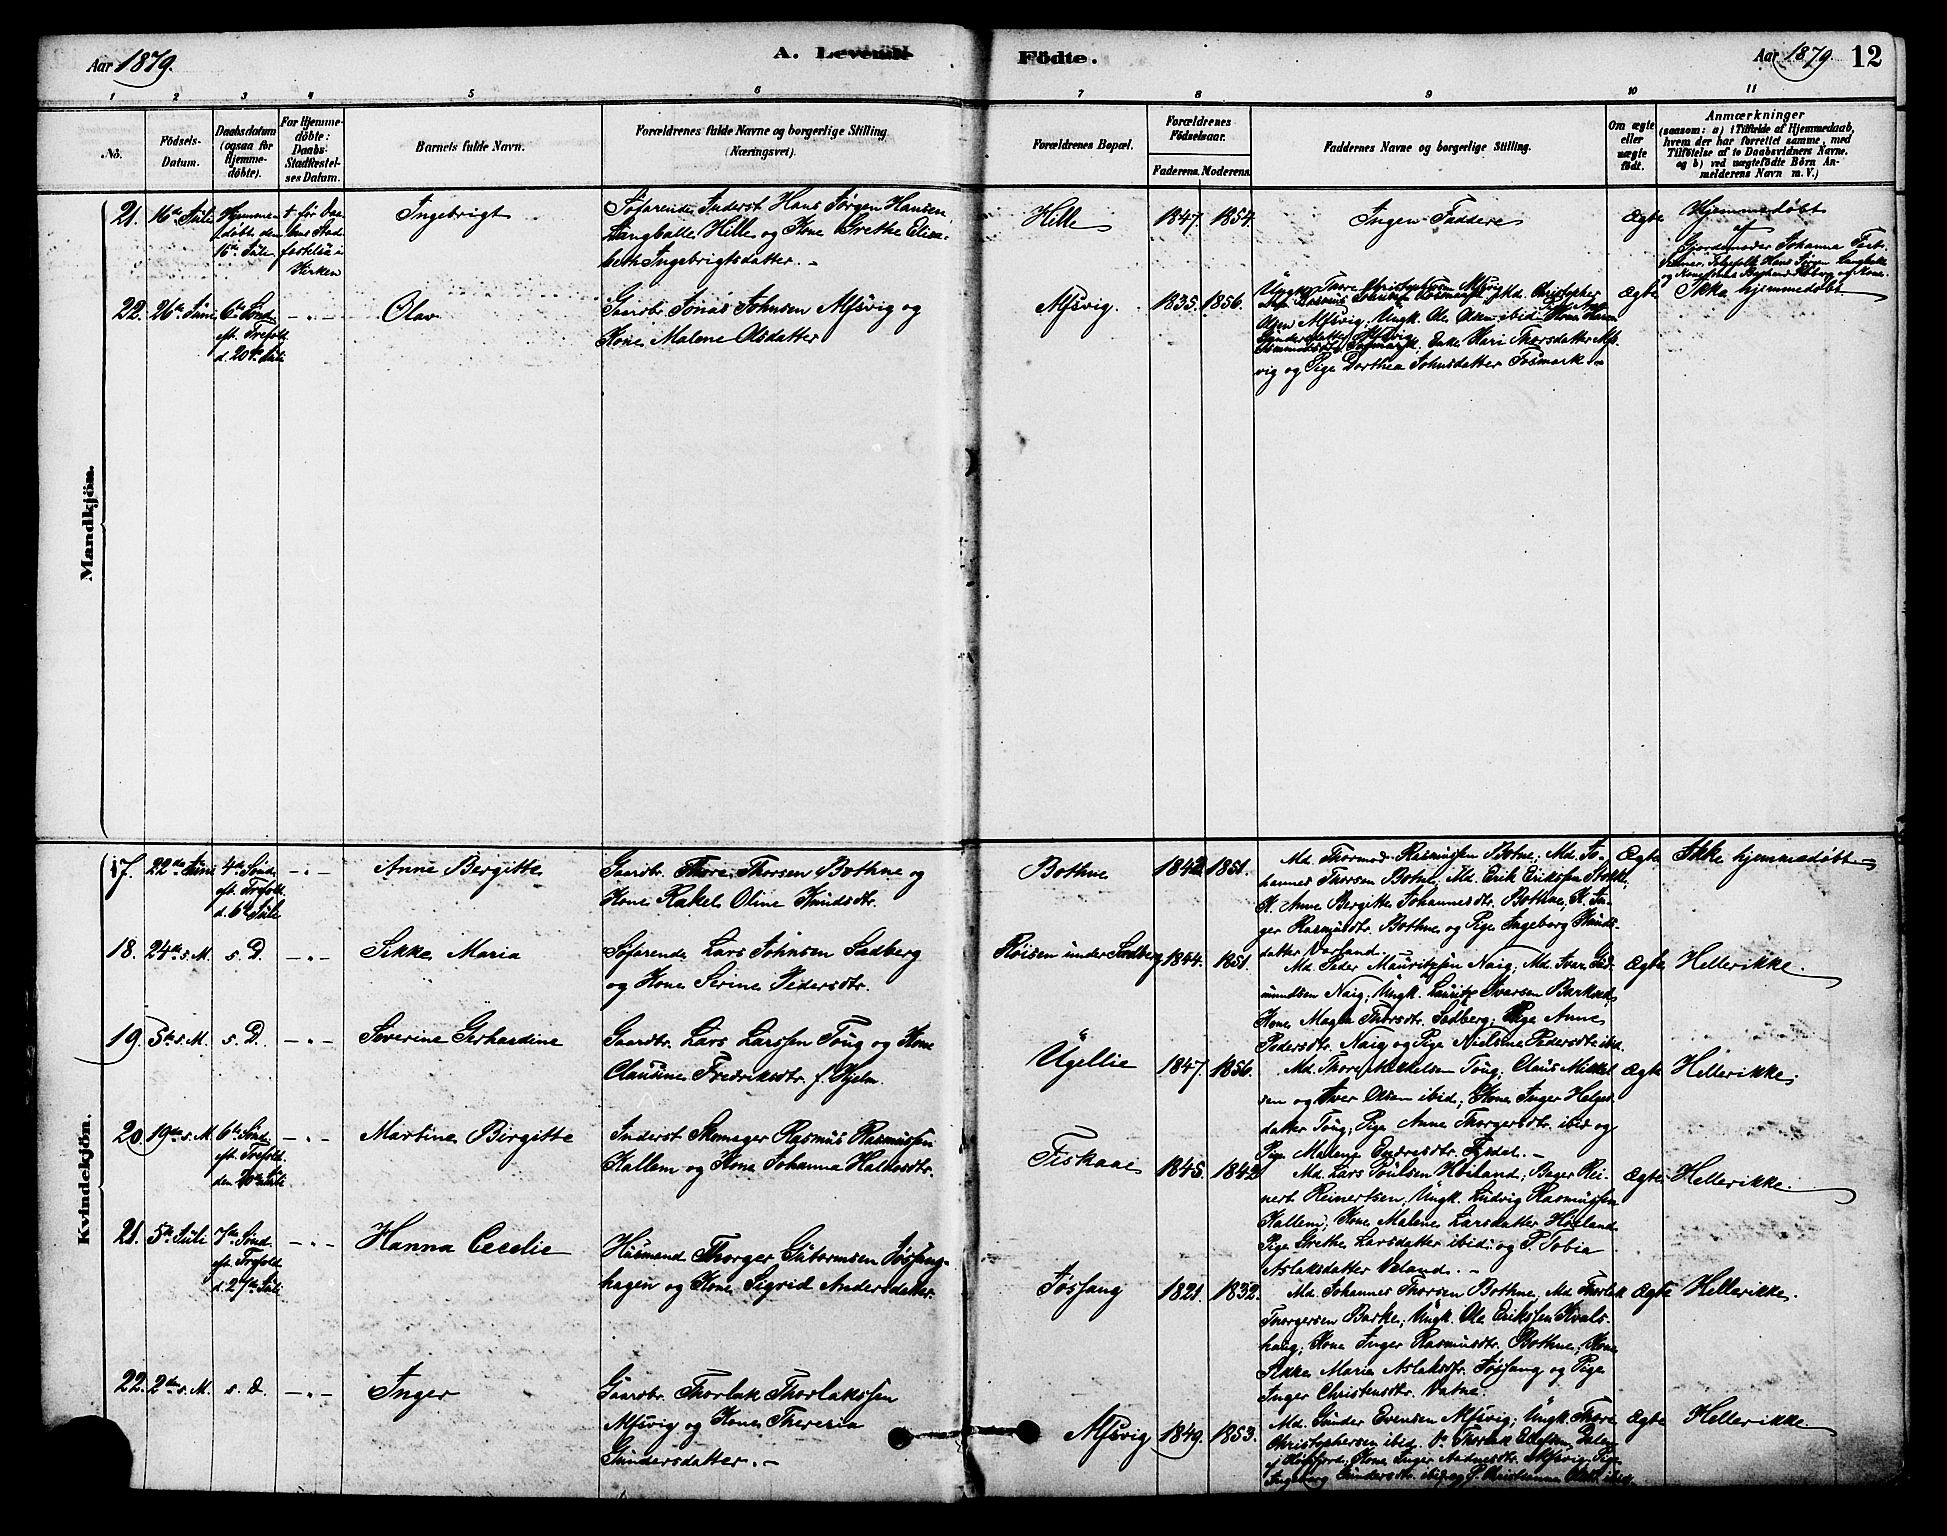 Aar 1879.
A. Levende
Födte.
Aar 1879.
12
1 2 3 4 5 6 7 8 9 10 11
No.
Födsels-
Datum.
Daabsdatum
(ogsaa for
Hjemme-
döbte).
For Hjemme-
döbte:
Daabs-
Stadfæstel-
ses Datum.
Barnets fulde Navn.
Forældrenes fulde Navne og borgerlige Stilling
(Næringsvei).
Forældrenes Bopæl.
Forældrenes
Födselsaar.
Faderens. Moderens.
Faddernes Navne og borgerlige Stilling.
Om ægte
eller
uægte
födt.
Anmærkninger
(saasom: a) i Tilfælde af Hjemmedaab,
hvem der har forrettet samme, med
Tilföielse af to Daabsvidners Navne,
og b) ved uægtefödte Börn An-
melderens Navn m. V.)
Mandkjön.
21. 16de Juli
Hjemme-
döbt den
16de Juli
Kirken
Ingebrigt
Söfarende Inderst Hans Jørgen Hansen
Langballe Hille og Kone Grethe Elisa-
beth Ingebrigtsdatter. -
Hille
1847. 1854.
Ingen Faddere
Ægte
Hjemmedøbt
af
Gjordemoder Johanna
22. 26de Juni
6te Sönd.
eft. Trefold.
d. 20de Juli
- " -
Olav
Gaardbr. Jonas Johnsen Alfsvig og
Kone Malene Olsdatter
Alfsvig.
1835. 1856.
Ungk. Thore Christophersen Alfsvig
Olsen Alfsvig; Ungk. Ole Olsen ibid
Enke Kari Thorsdatter Alfs-
vig og Pige Dorthea Johnsdatter Fosmark. -
Ægte
Ikke hjemmedøbt
Kvindekjön.
17. 22de Juni
4de Sönd.
eft. Trefold.
d. 6te Juli
- " -
Anne Bergitte
Gaardbr. Thore Thorsen Bothne og
Kone Rakel Oline Knudsdtr.
Bothne
1842 1851.
Md. Thormod Rasmussen Botne; Md. Jo-
hannes Thorsen Botne; Md. Erik Eriksen
K. Anne Bergitte Johannesdtr. Bothne; K. In-
ger Rasmusdtr. Bothne og Pige Ingeborg Knuds-
datter
Ægte
Ikke hjemmedøbt
18. 24de s. M. s. D. - " -
Sikke Maria
Söfarende Lars Johnsen Sadberg
og Kone Serine Pedersdtr.
Röisen under Sadberg
1844. 1851.
Md. Peder Mauritzsen Naig; Md. Iver
Naig; Ungk. Lauritz Ivarsen
Kone Magla Thorsdtr. Sadberg; Pige Anne
Pedersdtr. Naig og Pige Nielsine Pedersdtr. ibid.
Ægte
Hellerikke.
19. 5te s. M. s. D. - " -
Severine Gerhardine
Gaardbr. Lars Larssen Toug og Kone
Clausine Fredriksdtr. f. Hjelm.
Ugellie
1847. 1856.
Md. Thore Mikkelsen Toug; Claus Mikkel-
sen og Iver Olsen ibid; Kone Inger Helges-
datter Toug; Pige Anne Thorgersdtr. ibid og
Pige Malene Endresdtr. -
Ægte
Hellerikke.
20. 19de s. M.
6te Sönd.
eft. Trefold.
den 20de Juli
- " -
Martine Birgitte
Inderst Skomager Rasmus Rasmussen
Kallem og Kone Johanna
Fiskaae
1845. 1842
Md. Lars Poulsen Höiland; Bager Rei-
nert Reinertsen; Ungk. Ludvig Rasmussen
Kallem; Kone Malene Larsdatter Höiland
Pige Grethe Larsdatter ibid; og P. Tobia
Aslaksdatter -
Ægte
Hellerikke.
21. 5te Juli
7de Sönd.
eft. Trefold.
d. 27de Juli
- " -
Hanna Cecelie
Husmand Thorger Gutormsen Jøssang-
hagen og Kone Sigrid Andersdatter
Jøssang
1821. 1832.
Md. Johannes Thorsen Bothne; Md. Thorlak
Thorgersen Barke; Ungk. Ole Eriksen Kvals-
haug; Kone Inger Rasmusdtr. Bothne; Kone
Sikke Maria Aslaksdtr. Jøssang og Pige
Inger Christensdtr. Vatne.
Ægte
Hellerikke.
22. 2den s. M. s. D. - " -
Inger
Gaardbr. Thorlak Thorlakssen
Alfsvig og Kone Theresia
Gundersdatter. -
Alfsvig
1849. 1853.
Md. Gunder Evensen Alfsvig; Ungk. Thore
Christophersen ibid.
Kone Inger Alfsvig, Pige
Ingeborg Gundersdtr. ibid og P. Christianne
Ægte
Hellerikke.